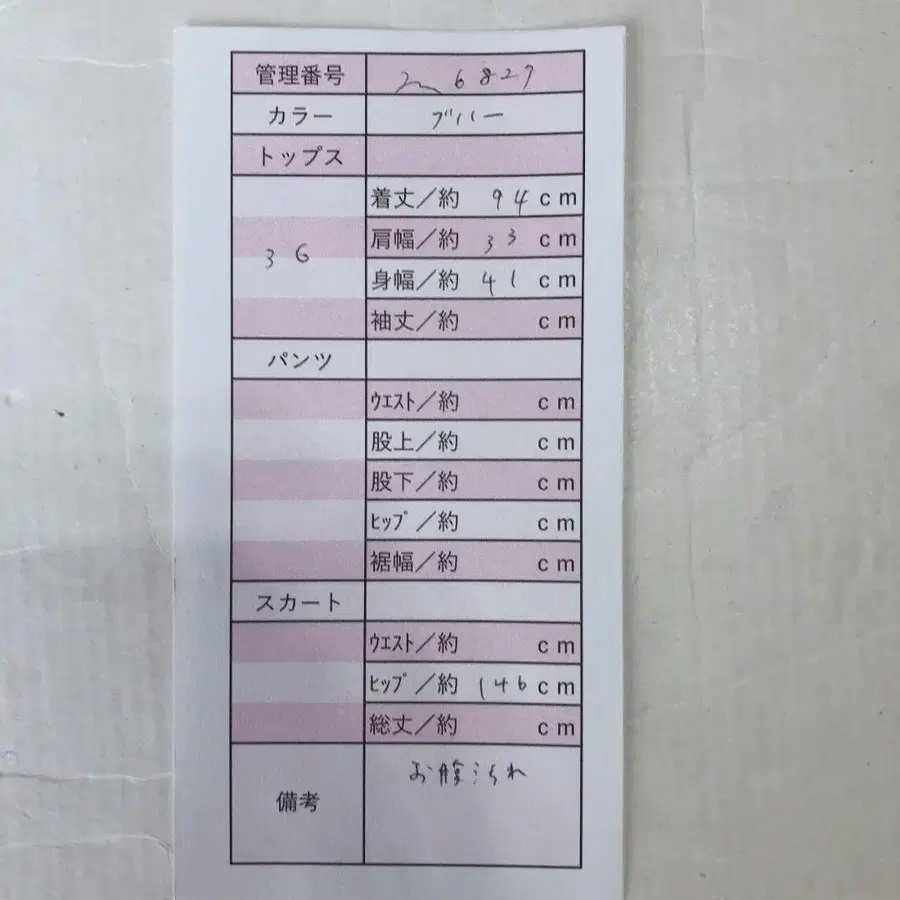 管理番号 6827
カラー
トップス
36
着丈／約 94cm
肩幅／約 33cm
身幅／約 41cm
袖丈／約 cm
パンツ
ウエスト／約 cm
股上／約 cm
股下／約 cm
ヒップ／約 cm
裾幅／約 cm
スカート
ウエスト／約 cm
ヒップ／約 146cm
総丈／約 cm
備考 お腹汚れ